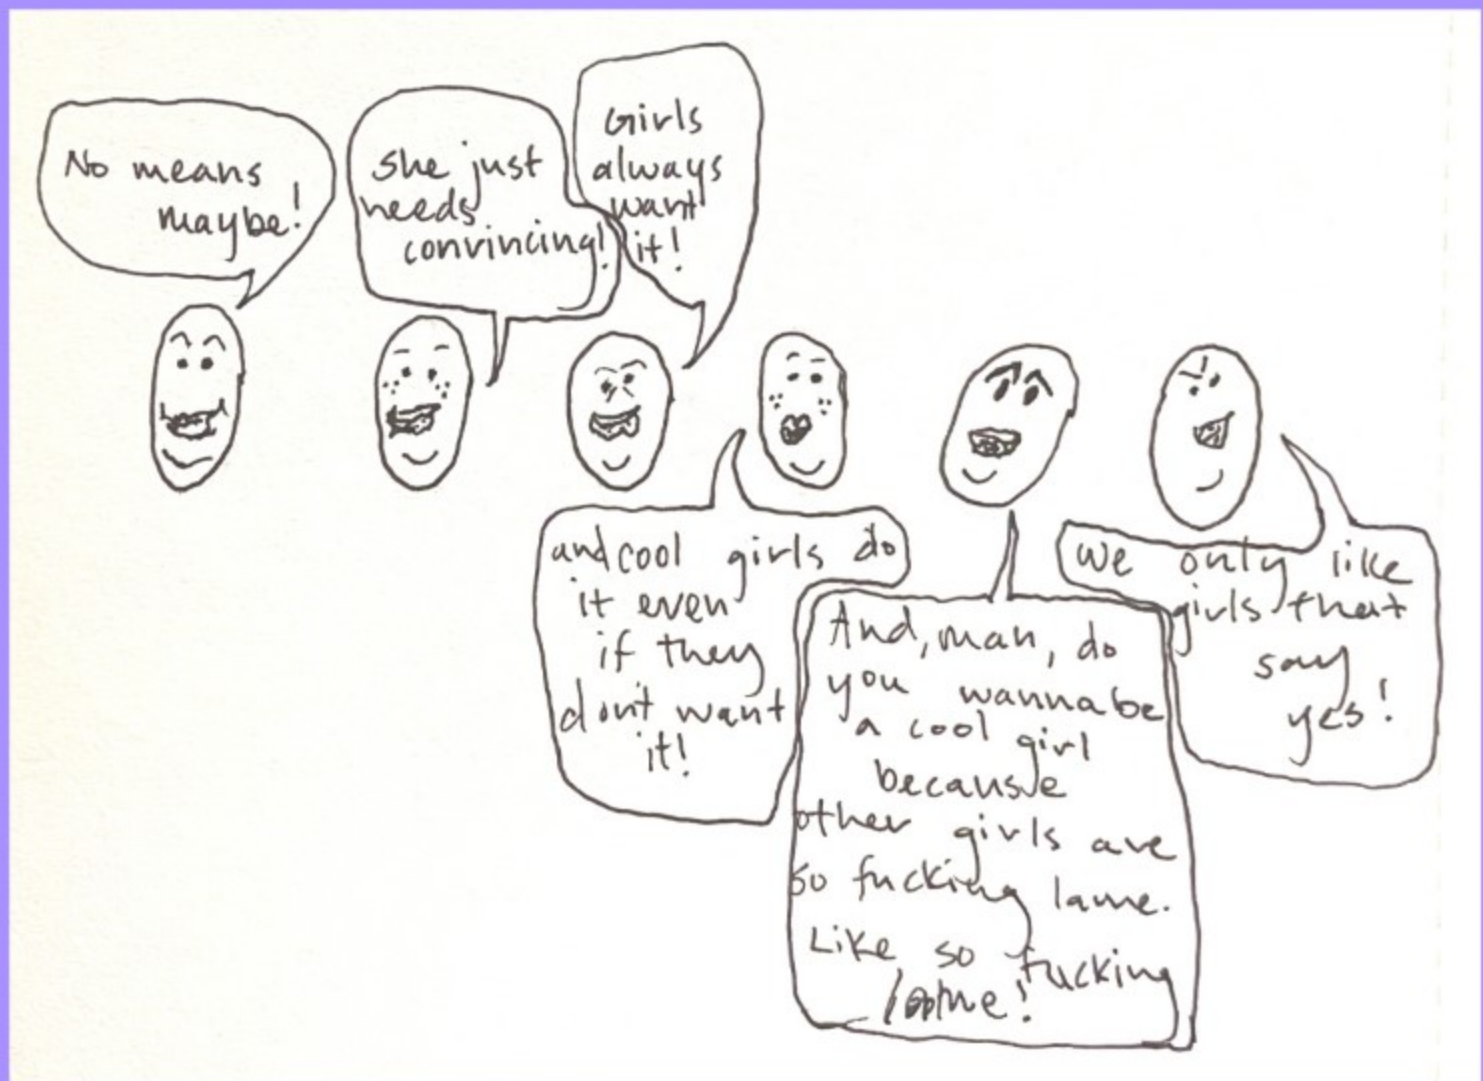 No means
maybe!
She just
needs
convincing!
Girls
always
want
it!
and cool girls do
it even
if they
don't want
it!
And, man, do
you wanna be
a cool girl
because
other girls are
so fucking lame.
Like so fucking
lame!
We only like
girls that
say
yes!